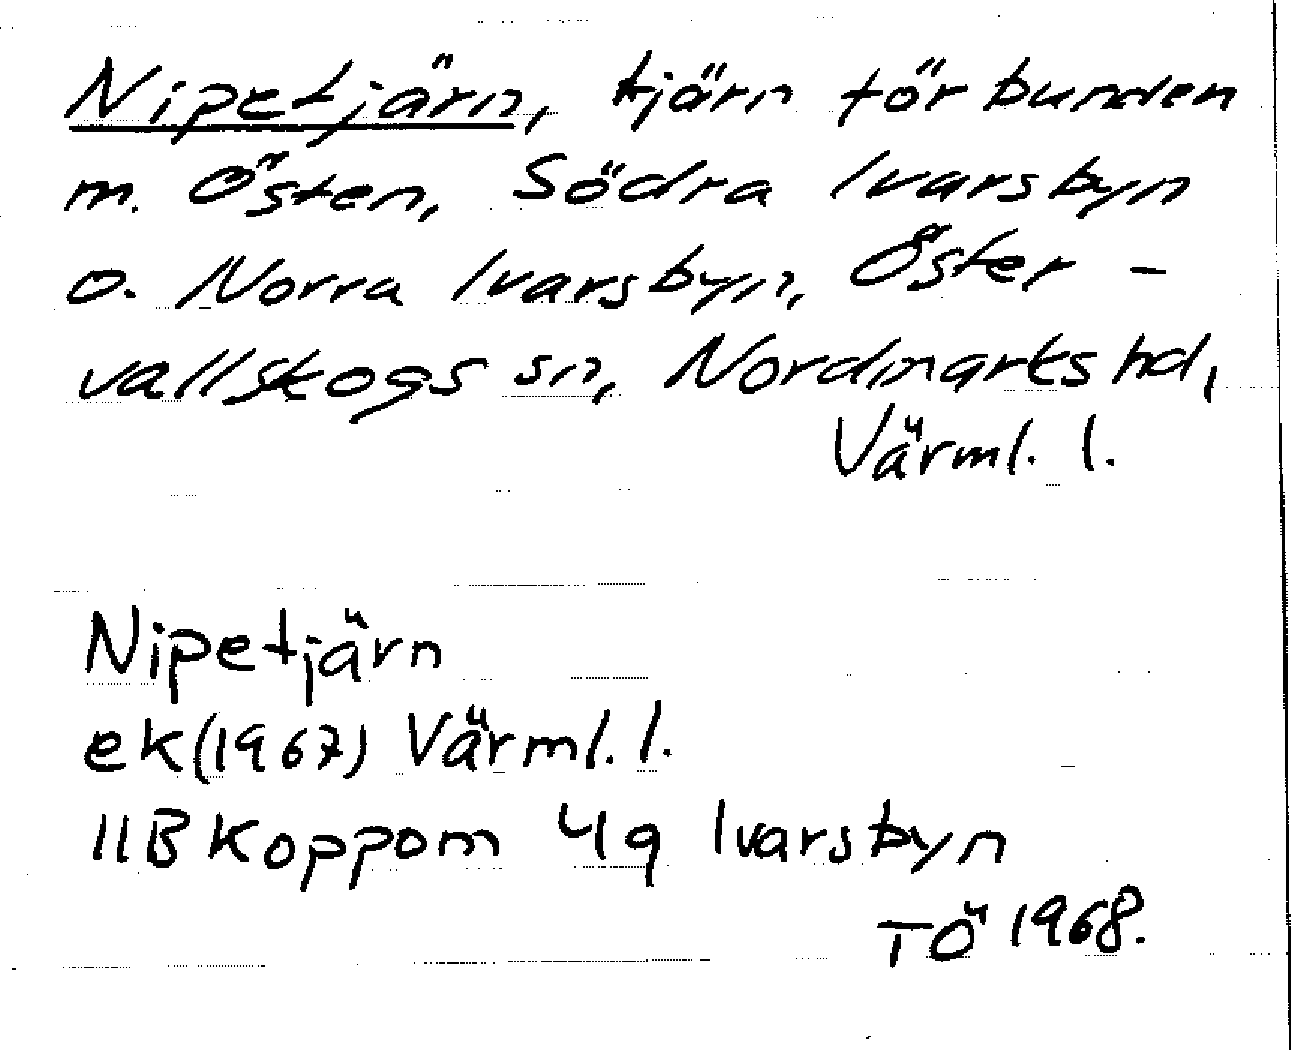 Nipetjärn, tjärn förbunden
m. Östen, Södra Ivarsbyn
o. Norra Ivarsbyn, Öster-
vallskogs sn, Nordmarks hd,
Värml. l.
Nipetjärn
ek (1967) Värml. l.
11B Koppom 4g Ivarsbyn
TÖ 1968.